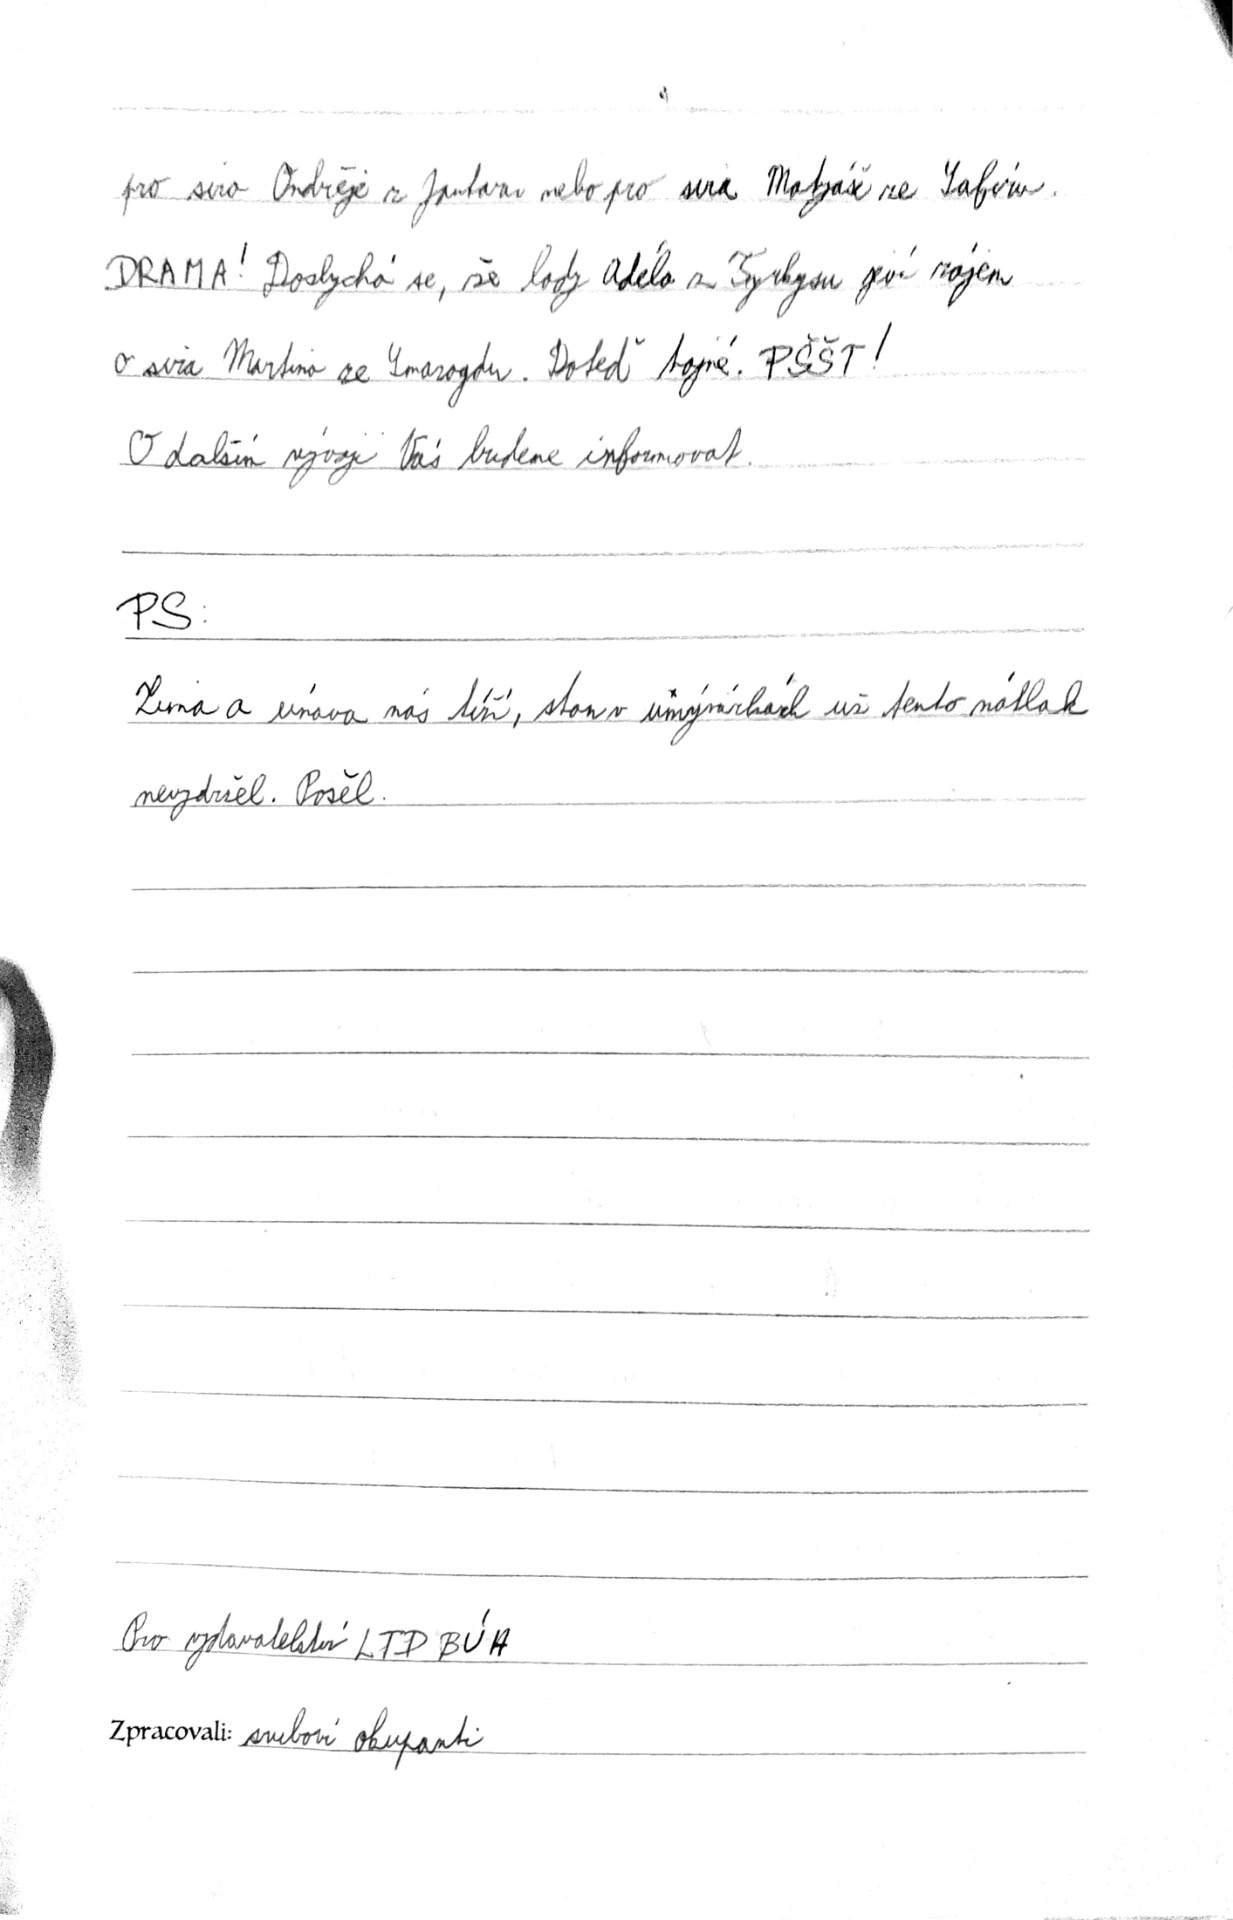 pro sira Ondřeje z Jantaru nebo pro sira Matyáše ze Safíru.
DRAMA! Doslychá se, že lady Adéla z Tyrkysu jeví zájem
o sira Martina ze Smaragdu. Doteď tajné. PŠŠT!
O dalším vývoji Vás budeme informovat.
PS:
Zima a únava nás tíží, stan v umývárkách už tento nátlak
nevydržel. Pošel.
Pro vydavatelství LTD BÚA
Zpracovali: sudoví okupanti